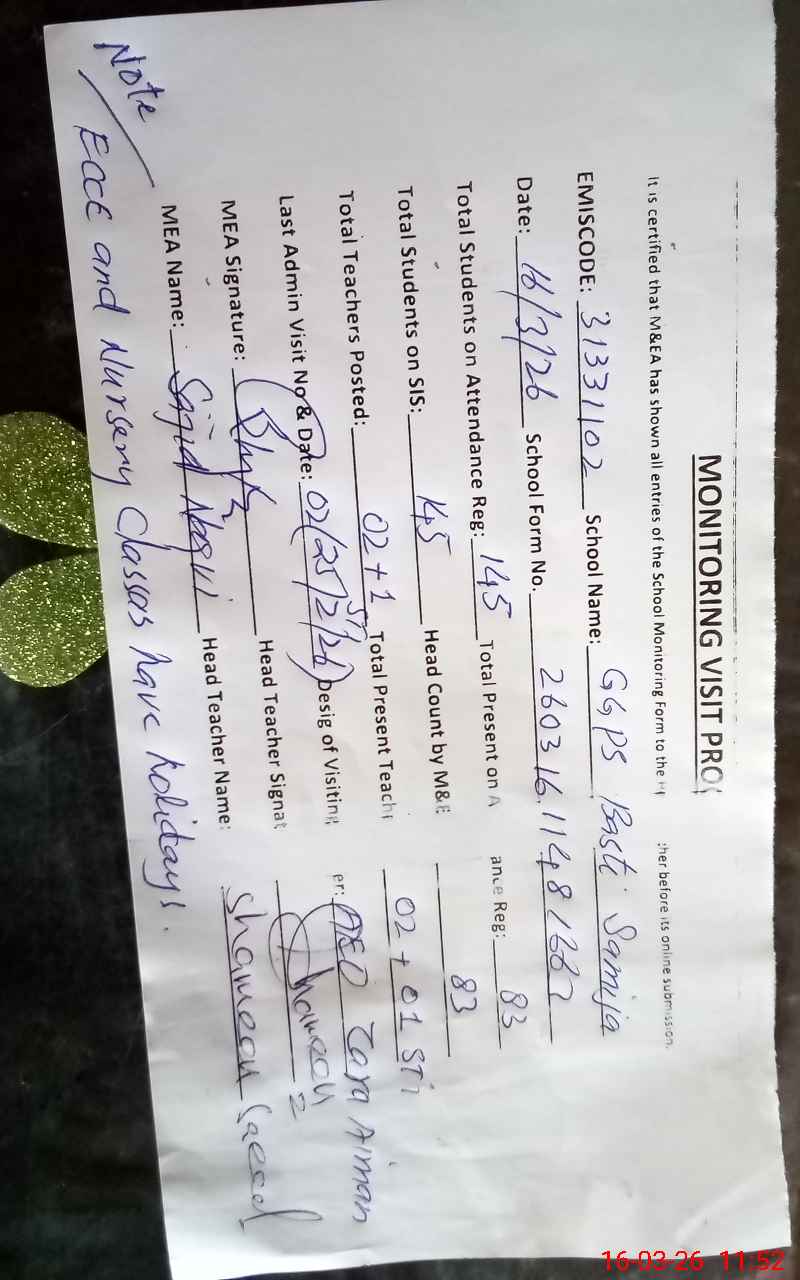 MONITORING VISIT PRO
It is certified that M&EA has shown all entries of the School Monitoring Form to the :her before its online submission.
EMISCODE: 31331102 School Name: GGPS Basti Samija
Date: 16/3/26 School Form No. 260316
Total Students on Attendance Reg: 145 Total Present on A ance Reg: 83
Total Students on SIS: 145 Head Count by M&E 83
Total Teachers Posted: 02+1 STI Total Present Teach 02 + 01 STI
Last Admin Visit No & Date: 02(25/2/26) Desig of Visiting er: AEO Zara Aiman
MEA Signature: Head Teacher Signat Shameen
MEA Name: Sajid Naqvi Head Teacher Name: Shameen Saeed
Note ECCE and Nursery Classes have holidays.
16-03-26 11:52